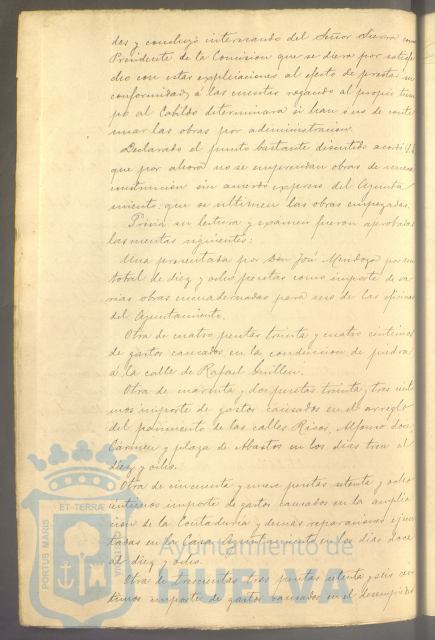 des y concluyó interesando del Señor Sierra como
Presidente de la Comision que se diera por satisfe
cho con estas explicaciones al efecto de prestar su
conformidad á las cuentas rogando al propio tiem
po al Cabildo determinara si han ó no de conti
nuar las obras por administracion.
Declarado el punto bastante discutido acordó
que por ahora no se emprendan obras de nueva
construccion sin acuerdo expreso del Ayunta
miento: que se ultimen las obras empezadas.
Prévia su lectura y exámen fueron aprobadas
las cuentas siguientes:
Una presentada por Don José Mendoza por su
total de diez y ocho pesetas como importe de va
rias obras encuadernadas para uso de las oficinas
del Ayuntamiento.
Otra de cuatro pesetas treinta y cuatro céntimos
de gastos causados en la conduccion de piedra
á la calle de Rafael Guillen.
Otra de cuarenta y dos pesetas treinta y tres cénti
mos importe de gastos causados en el arreglo
del pavimento de las calles Risos, Alfonso doce,
Cármen y plaza de Abastos en los dias trece al
diez y ocho.
Otra de cincuenta y nueve pesetas setenta y ocho
céntimos importe de gastos causados en la amplia
cion de la Contaduria y demás reparaciones ejecu
tadas en la Casa Ayuntamiento en los dias doce
al diez y ocho.
Otra de trescientas tres pesetas setenta y seis cen
timos importe de gastos causados en el desempeño
PORTUS MARIS
ET TERRÆ
CUSTODIA
Ayuntamiento de
HUELVA